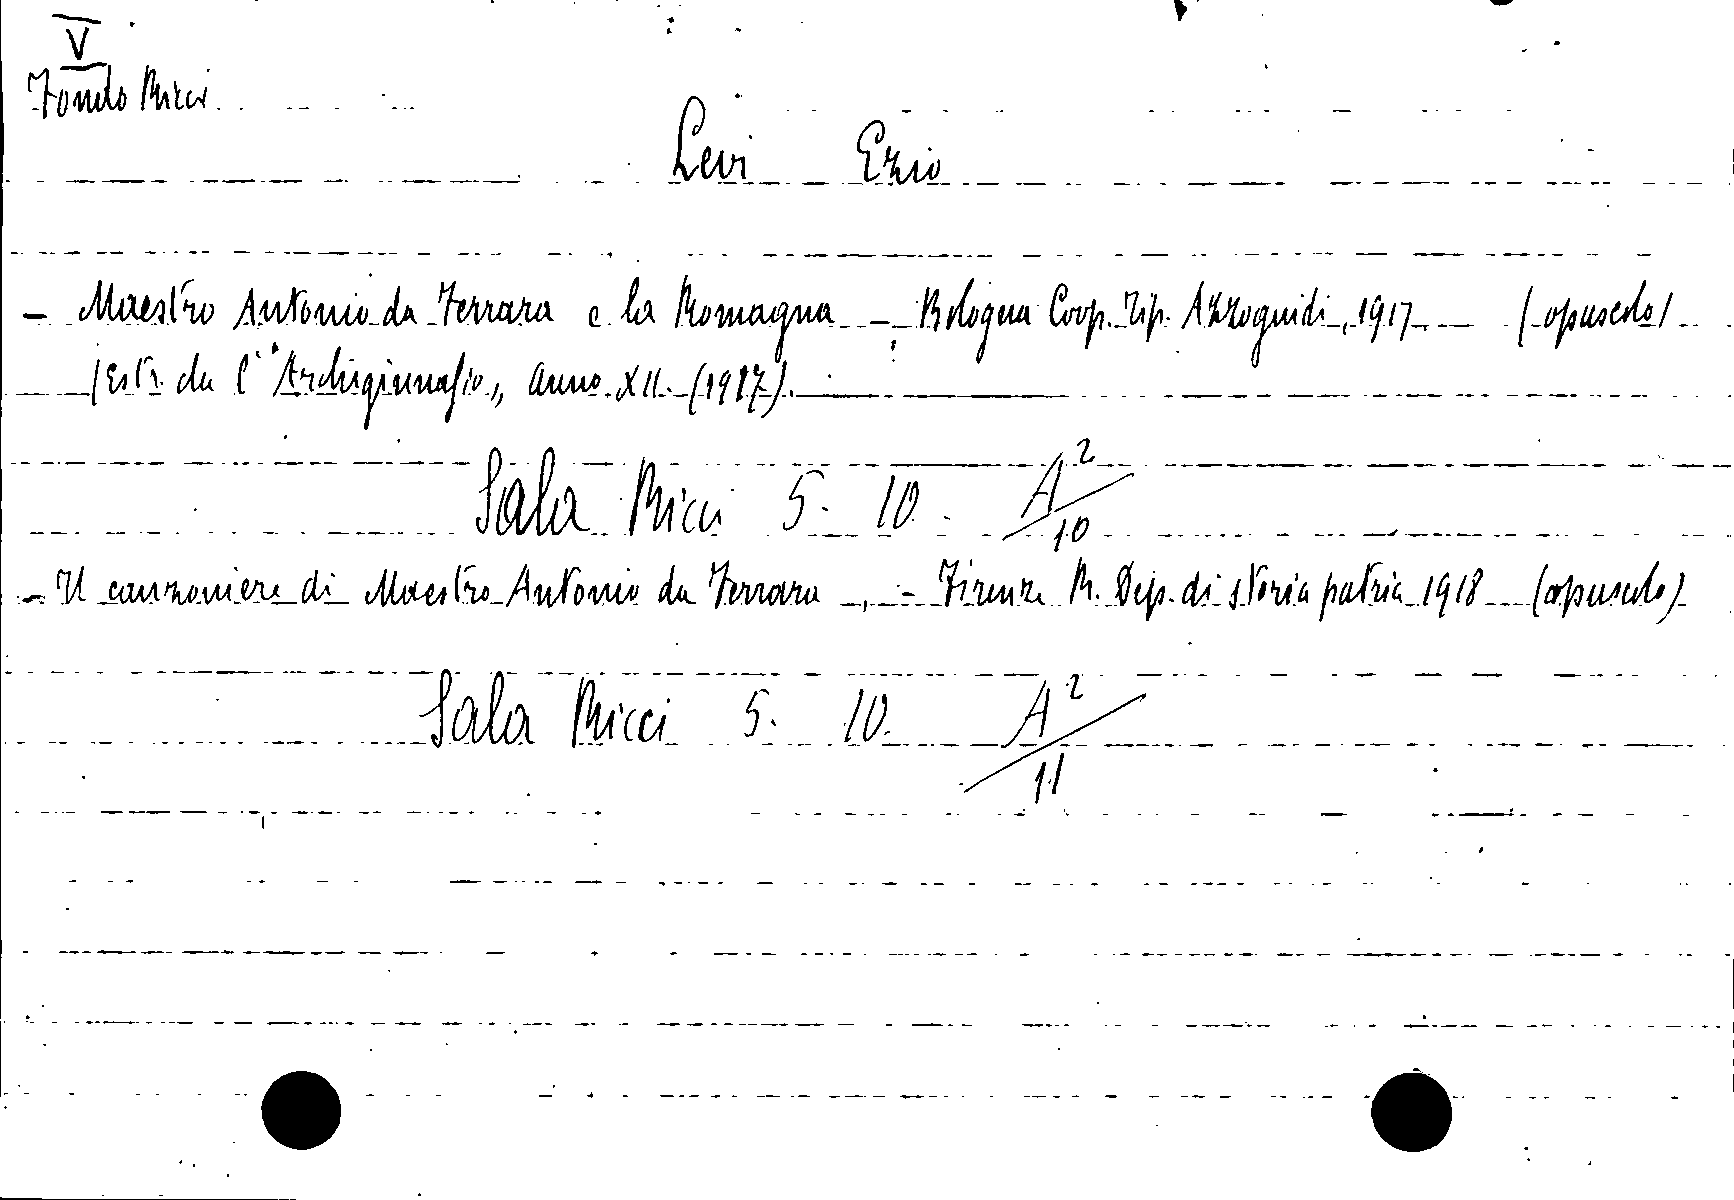 V
Fondo Ricci
Levi Ezio
- Maestro Antonio da Ferrara e la Romagna - Bologna Coop. Tip. Azzoguidi, 1917 (opuscolo)
(Estr. da l' "Archiginnasio", anno XII. (1917).
Sala Ricci 5. 10. A²/10
- Il canzoniere di Maestro Antonio da Ferrara, - Firenze R. Dep. di storia patria 1918 (opuscolo)
Sala Ricci 5. 10. A²/11